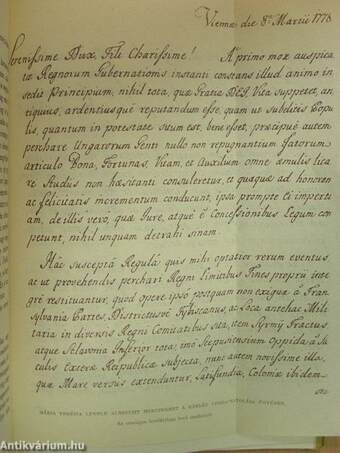 Viennæ die 8ª Martii 1778
Serenissime Dux, Fili Charissime! A primo mox auspica-
tæ Regnorum Gubernationis instanti constans illud animo in-
sedit Principium, nihil tota, quæ Gratia DEI, Vita suppetet, an-
tiquius, ardentiusque reputandum esse, quam ut subditis Popu-
lis, quantum in potestate situm est, bene esset, præcipue autem
percharæ Ungarorum Genti nullo non repugnantium fatorum
articulo Bona, Fortunas, Vitam, et Auxilium omne æmulis lica-
re Studiis non hæsitanti consuleretur, et quæquæ ad honorem
ac felicitatis incrementum conducunt, ipsa prompte Ei imperti-
am, de illis vero, quæ Jure, atque è Concessionibus Legum com-
petunt, nihil unquam detrahi sinam.
Hâc susceptâ Regulâ, quis mihi optatior rerum eventus,
ac ut provehendis percharı Regni Limitibus Fines proprii inte-
grè restituantur, quod opere ipso postquam non exigua è Fran-
sylvania Partes, Districtusvè Fybiscanus, ac Loca antehac Mili-
taria in diversis Regni Comitatibus sita, item Syrmij Tractus,
atque Sclavonia Inferior tota; imo Scepusiensium Oppida à Sæ-
culis Exteræ Reipublicæ subjecta, nunc autem novissime illa,
quæ Mare versus extenduntur, Latifundia, Colonæ ibidem-
MÁRIA TERÉZIA LEVELE ALBERT
Az országos levéltárban levő eredetiről.
Antikvárium.hu